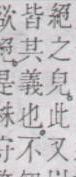 絕之皃。此又
皆其義也。不
欲絕。是殊